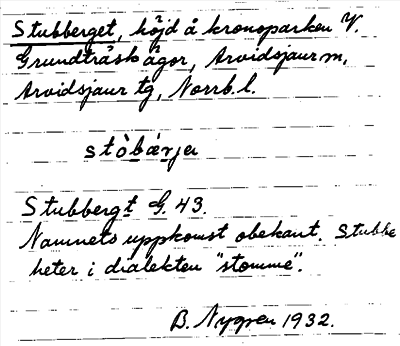 Stubberget, höjd å kronoparken V.
Grundträskågor, Arvidsjaur m,
Arvidsjaur tg, Norrb. l.
stòbárja
Stubbergt G. 43.
Namnets uppkomst obekant. Stubbe
heter i dialekten "stomme".
B. Nygren 1932.